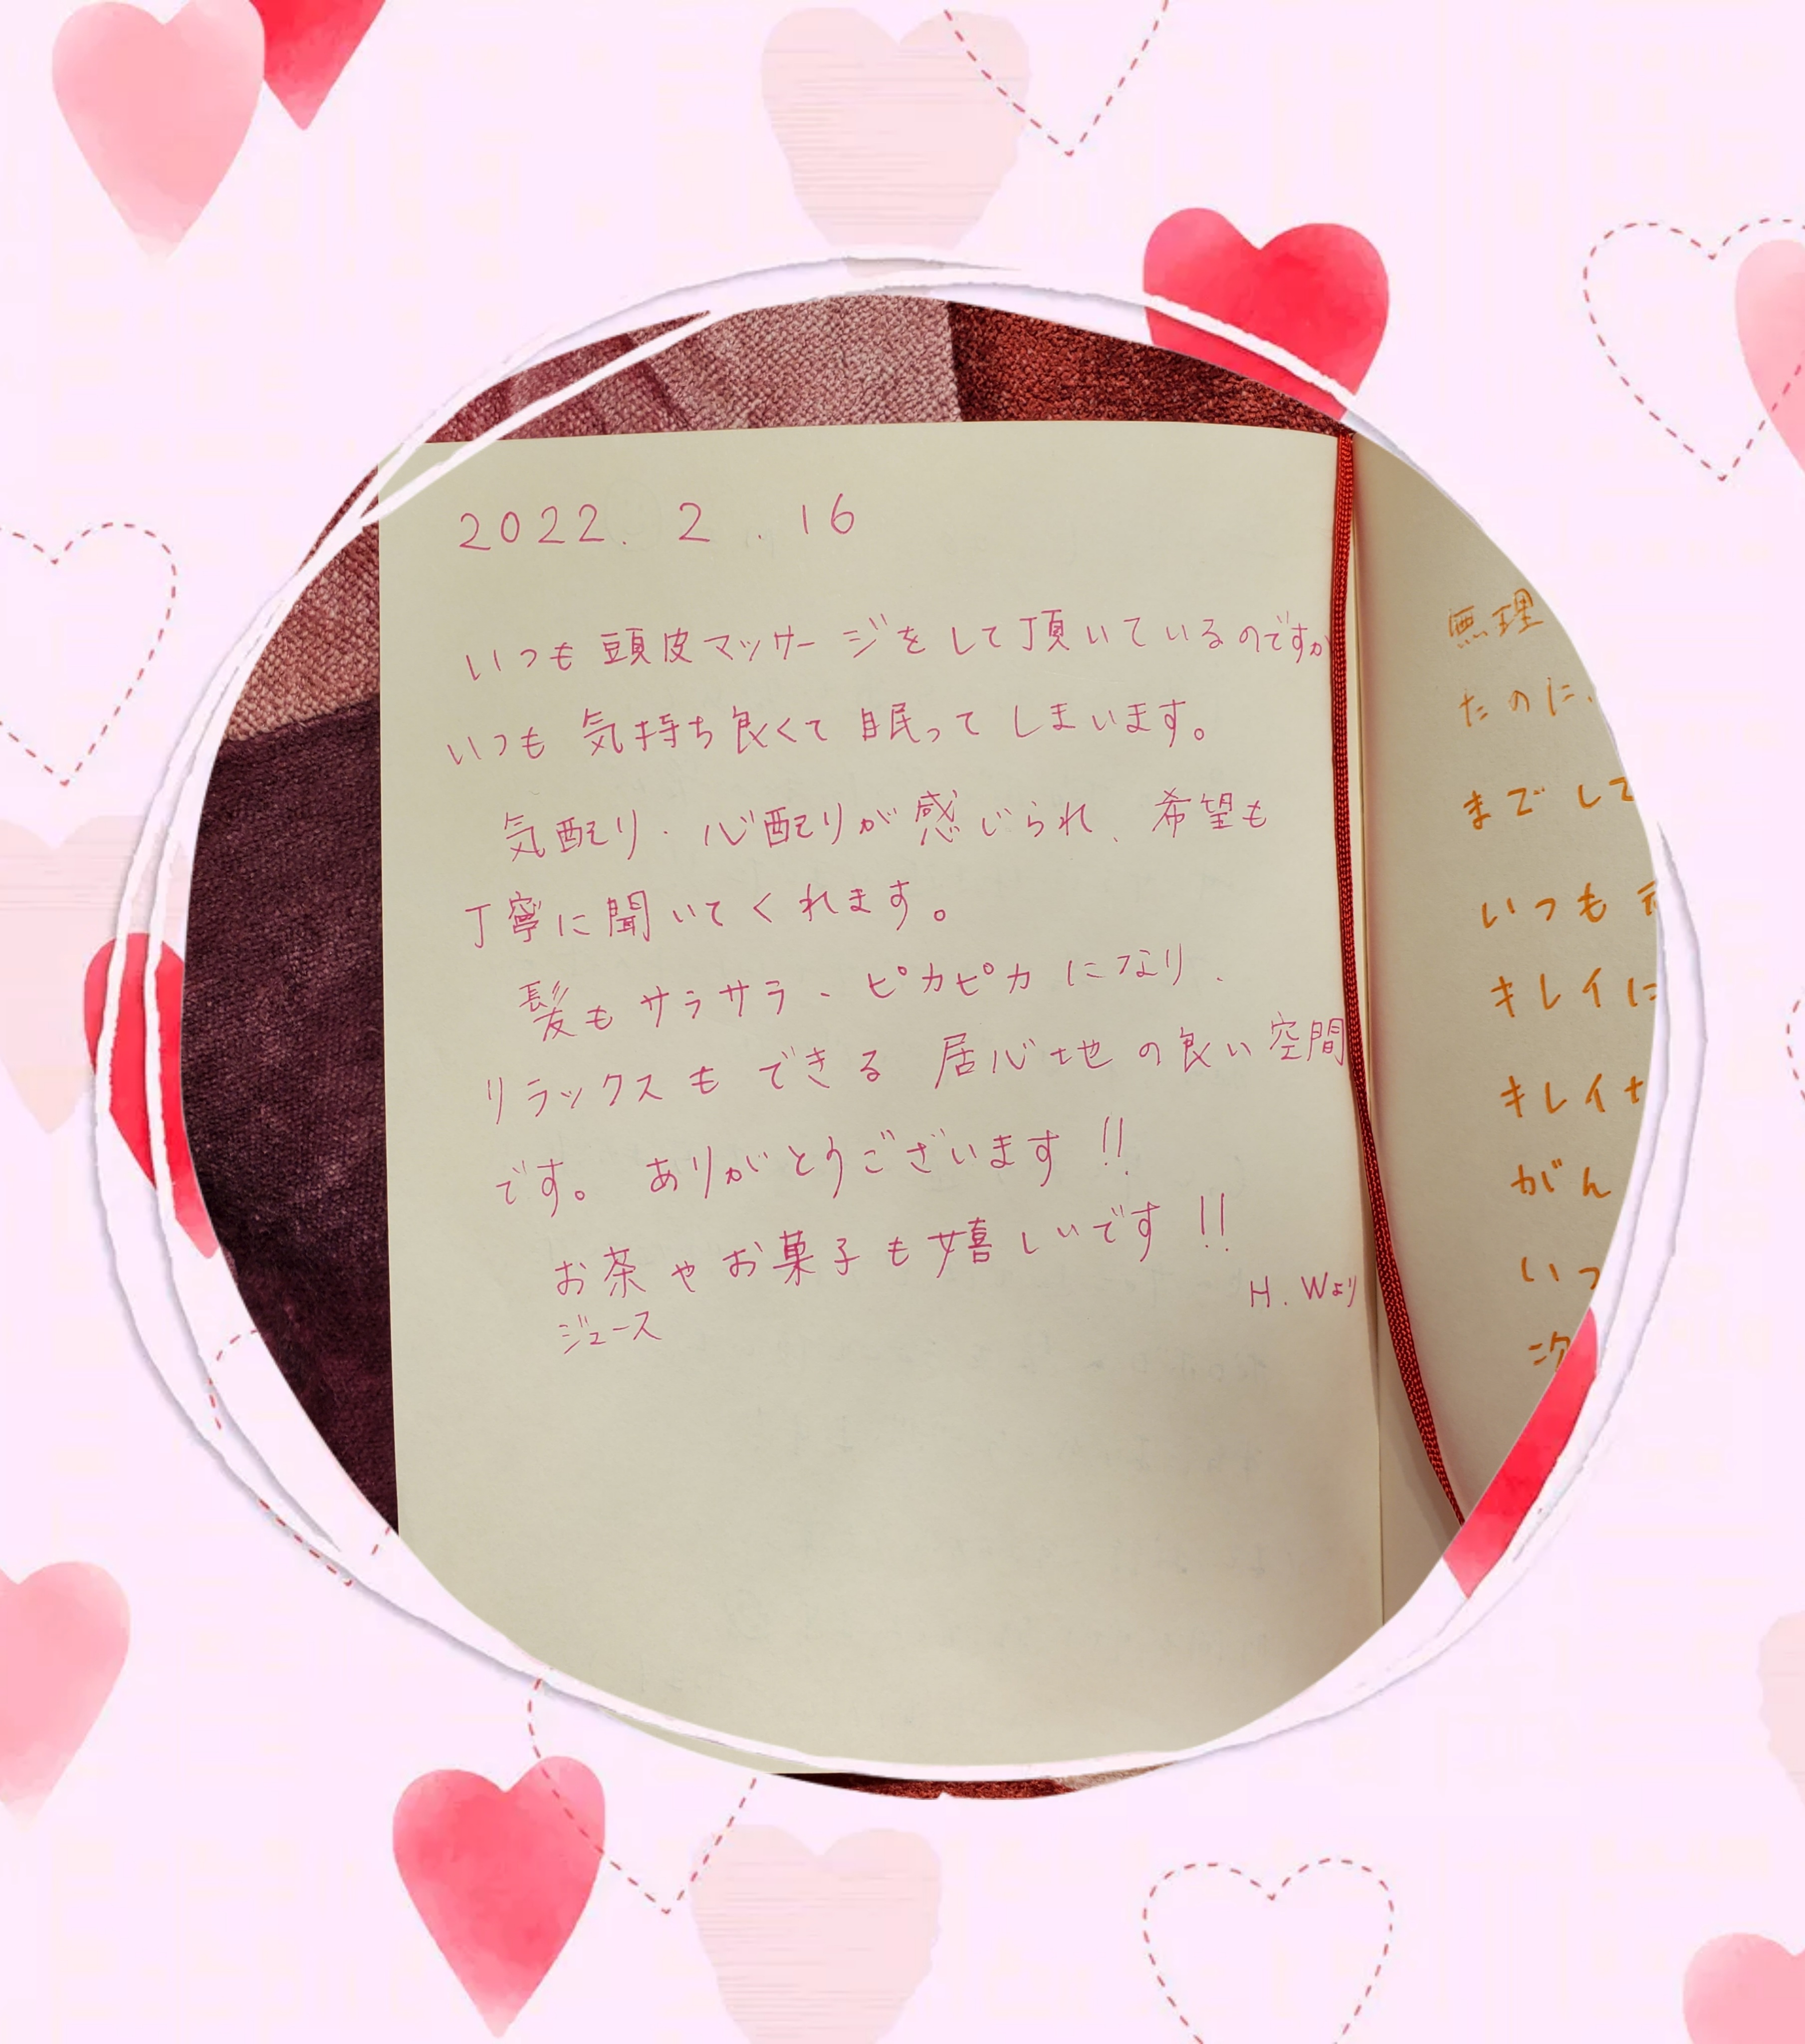 2022. 2. 16
いつも頭皮マッサージをして頂いているのですが
いつも気持ち良くて眠ってしまいます。
気配り・心配りが感じられ、希望も
丁寧に聞いてくれます。
髪もサラサラ、ピカピカになり、
リラックスもできる居心地の良い空間
です。ありがとうございます!!
お茶やお菓子も嬉しいです!!
ジュース
H. Wより
無理
たのに、
までして
いつも
キレイに
キレイ
がん
いつ
次